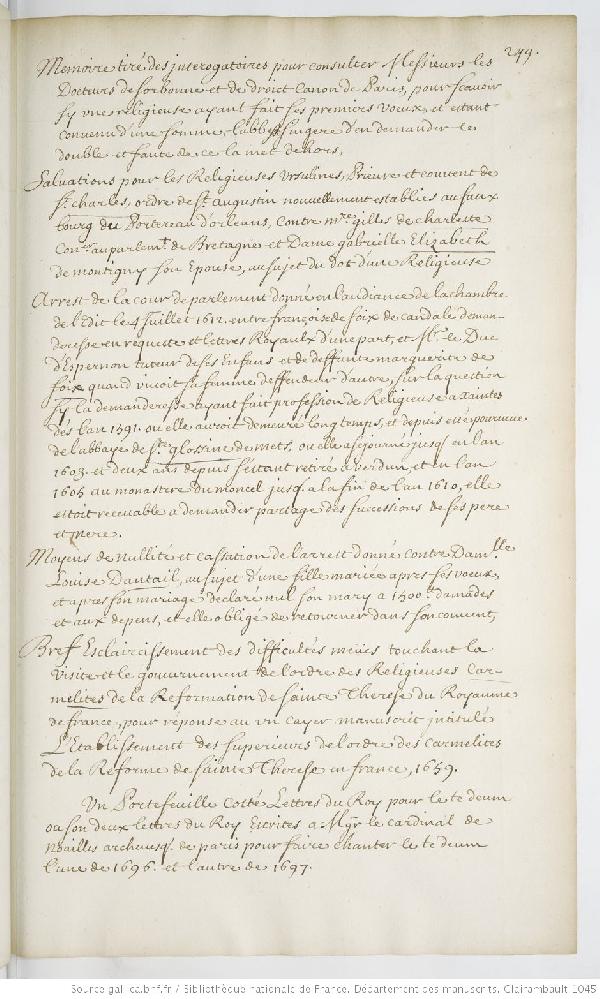 249.
Memoire tiré des interogatoires pour consulter Messieurs les
Docteurs de sorbonne et de droict Canon de Paris, pour scavoir
sy une religieuse ayant fait ses premiers voeux, et estant
convenu d'une somme, l'abbesse singere d'en demander le
double et faute de ce la met dehors,
Salvations pour les Religieuses Ursulines, Prieure et couvent de
St. charles, ordre de St. augustin nouvellement establies au faux
bourg du Portereau d'orleans, contre mre. gilles de charette
Coner. au parlemt. de Bretagne et Dame gabrielle Elizabeth
de montigny son Epouse, au sujet du dot d'une Religieuse
Arrest de la cour de parlement donné en l'audiance de la chambre
de l'Edit le 4 Juillet 1612. entre françoise de foix de candale deman-
deresse en requeste et lettres Royaulx d'une part, et Mr. le Duc
d'Espernon tuteur de ses Enfans et de deffunte marguerite de
foix quand vivoit sa femme deffendeur d'autre, sur la question
sy la demanderesse ayant fait profession de Religieuse a xaintes
dés l'an 1591. ou elle auroit demeuré longtemps, et depuis esté pourvue
de l'abbaye de Ste. glossine de mets, ou elle a séjourné jusq. en l'an
1603. et deux ans depuis s'estant retiré a verdun, et en l'an
1605 au monastere du moncel jusq. a la fin de l'an 1610, elle
estoit recevable a demander partage des sucessions de ses pere
et mere.
Moyens de nullité et cassation de l'arrest donné contre Damlle.
Louise Dautail, au sujet d'une fille mariée apres ses voeux,
et apres son mariage declaré nul son mary a 1500tt. damades
et aux depens, et elle obligé de retourner dans son couvent,
Bref Esclaircissement des difficultés meües touchant la
visite et le gouvernement de l'ordre des Religieuses Car-
melites de la Reformation de sainte Therese du Royaume
de france, pour réponse au un cayer manuscrit intitulé
L'Etablissement des superieurs de l'ordre des Carmelites
de la Réforme de sainte Therese en france, 1659.
Un Portefeuille cotté Lettres du Roy pour le te deum
ou son deux lettres du Roy Escrites a Mgr le cardinal de
Noailles archevesq. de paris pour faire chanter le te deum
l'une de 1696. et l'autre de 1697.
Source gallica.bnf.fr / Bibliothèque nationale de France. Département des manuscrits. Clairambault 1045